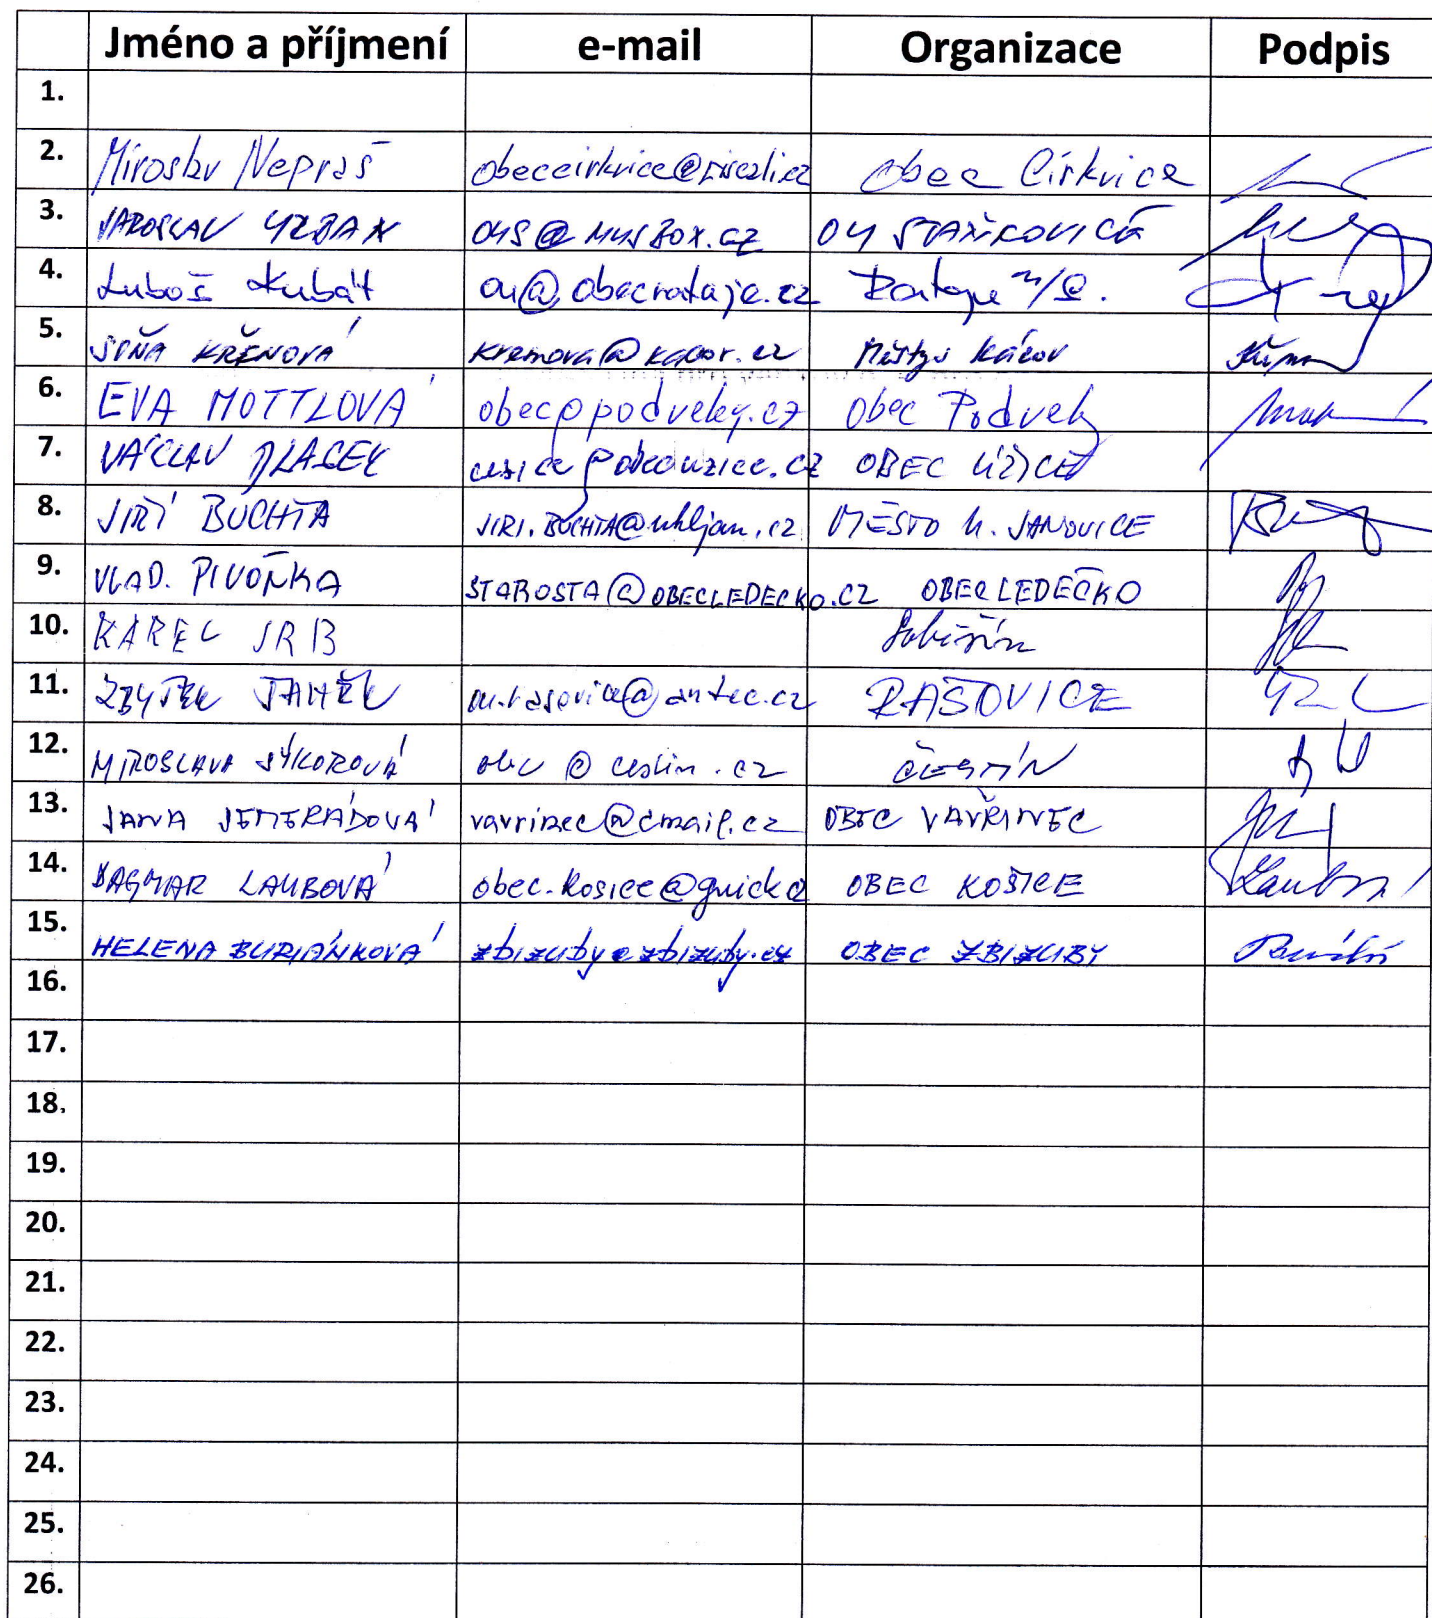 Jméno a příjmení e-mail Organizace Podpis
1.
2. Miroslav Nepraš obeccirkvice@ Obec Církvice
3. JAROSLAV URBAN OUS@ OU STAŇKOVICE
4. Luboš Kubát ou@obecrataje.cz Rataje n/S.
5. SOŇA KŘENOVÁ Městys Kácov
6. EVA MOTTLOVÁ obec@podveky.cz Obec Podveky
7. VÁCLAV PLACEK OBEC ÚŽICE
8. JIŘÍ BUCHTA JIRI.BUCHTA@uhljan.cz MĚSTO U. JANOVICE
9. VLAD. PIVOŇKA STAROSTA@OBECLEDECKO.CZ OBEC LEDEČKO
10. KAREL SRB Soběšín
11. ZBYNĚK ou.rasovice@ RAŠOVICE
12. MIROSLAVA SÝKOROVÁ obec@cestin.cz ČESTÍN
13. JANA SEMERÁDOVÁ vavrinec@cmail.cz OBEC VAVŘINEC
14. DAGMAR LAUBOVÁ obec.kosice@quick.cz OBEC KOŠICE
15. HELENA BURIÁNKOVÁ zbizuby@zbizuby.cz OBEC ZBIZUBY
16.
17.
18.
19.
20.
21.
22.
23.
24.
25.
26.